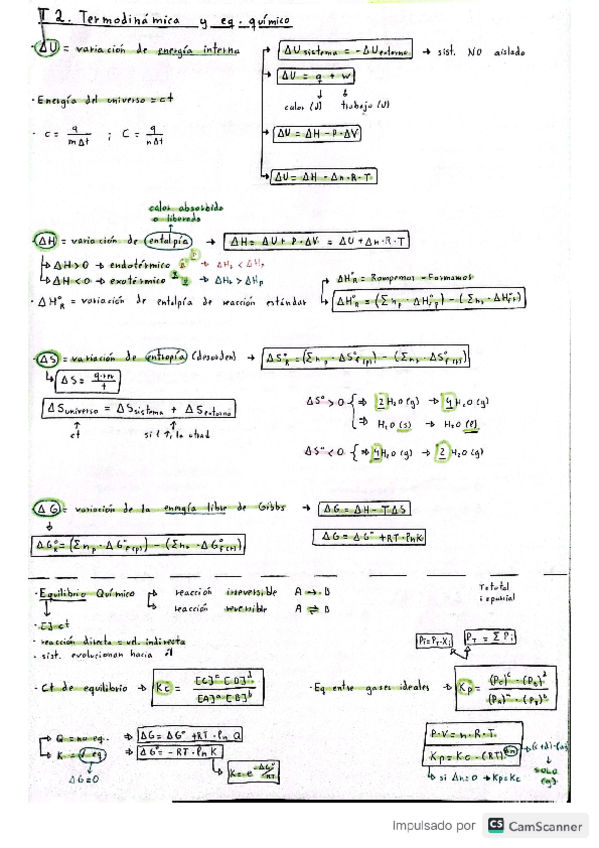 T 2. Termodinámica y eq. químico
ΔU = variación de energía interna
ΔU sistema = -ΔU entorno → sist. NO aislado
ΔU = q + w
calor (J) trabajo (J)
· Energía del universo = ct
· c = q / mΔt ; C = q / nΔt
ΔU = ΔH - P·ΔV
ΔU = ΔH - Δn·R·T
calor absorbido
o liberado
ΔH = variación de entalpía → ΔH = ΔU + P·ΔV = ΔU + Δn·R·T
ΔH>0 → endotérmico
ΔH<0 → exotérmico
ΔH°R = Rompemos - Formamos
· ΔH°R = variación de entalpía de reacción estándar
ΔH°R = (Σnp · ΔH°fp) - (Σnr · ΔH°fr)
ΔS = variación de entropía (desorden) → ΔS°R = (Σnp · ΔS°f(p)) - (Σnr · ΔS°f(r))
ΔS universo = ΔS sistema + ΔS entorno
ct
ΔS° > 0 ⇒ 2 H₂O (g) → 4 H₂O (g)
⇒ H₂O (s) → H₂O (l)
ΔS° < 0 ⇒ 4 H₂O (g) → 2 H₂O (g)
ΔG = variación de la energía libre de Gibbs → ΔG = ΔH - TΔS
ΔG°R = (Σnp · ΔG°f(p)) - (Σnr · ΔG°f(r))
· Equilibrio Químico
reacción irreversible A → B
reacción reversible A ⇌ B
T: total
i: parcial
· [ ] ct
· reacción directa = vel. indirecta
· sist. evolucionan hacia él
Pi = PT·Xi
PT = ΣPi
· Ct de equilibrio → Kc = [C]ᶜ·[D]ᵈ / [A]ᵃ·[B]ᵇ
· Eq entre gases ideales → Kp =
Q = no eq. ⇒ ΔG = ΔG° + RT·ln Q
K = eq ⇒ ΔG° = -RT·ln K
ΔG=0
P·V = n·R·T
Kp = Kc·(RT)^Δn
SOLO
(g)
si Δn=0 → Kp=Kc
Impulsado por CS CamScanner